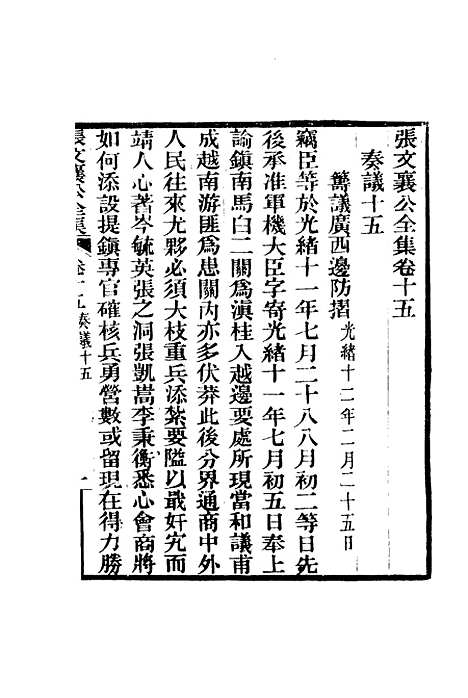 張文襄公全集卷十五
奏議十五
籌議廣西邊防摺光緒十二年二月二十五日
竊臣等於光緒十一年七月二十八八月初二等日先
後承准軍機大臣字寄光緒十一年七月初五日奉上
諭鎮南馬白二關爲滇桂入越邊要處所現當和議甫
成越南游匪爲患關內亦多伏莽此後分界通商中外
人民往來尤夥必須大枝重兵添紮要隘以戢奸宄而
靖人心著岑毓英張之洞張凱嵩李秉衡悉心會商將
如何添設提鎮專官確核兵勇營數或留現在得力勝
張文襄公全集 卷十五 奏議十五 一